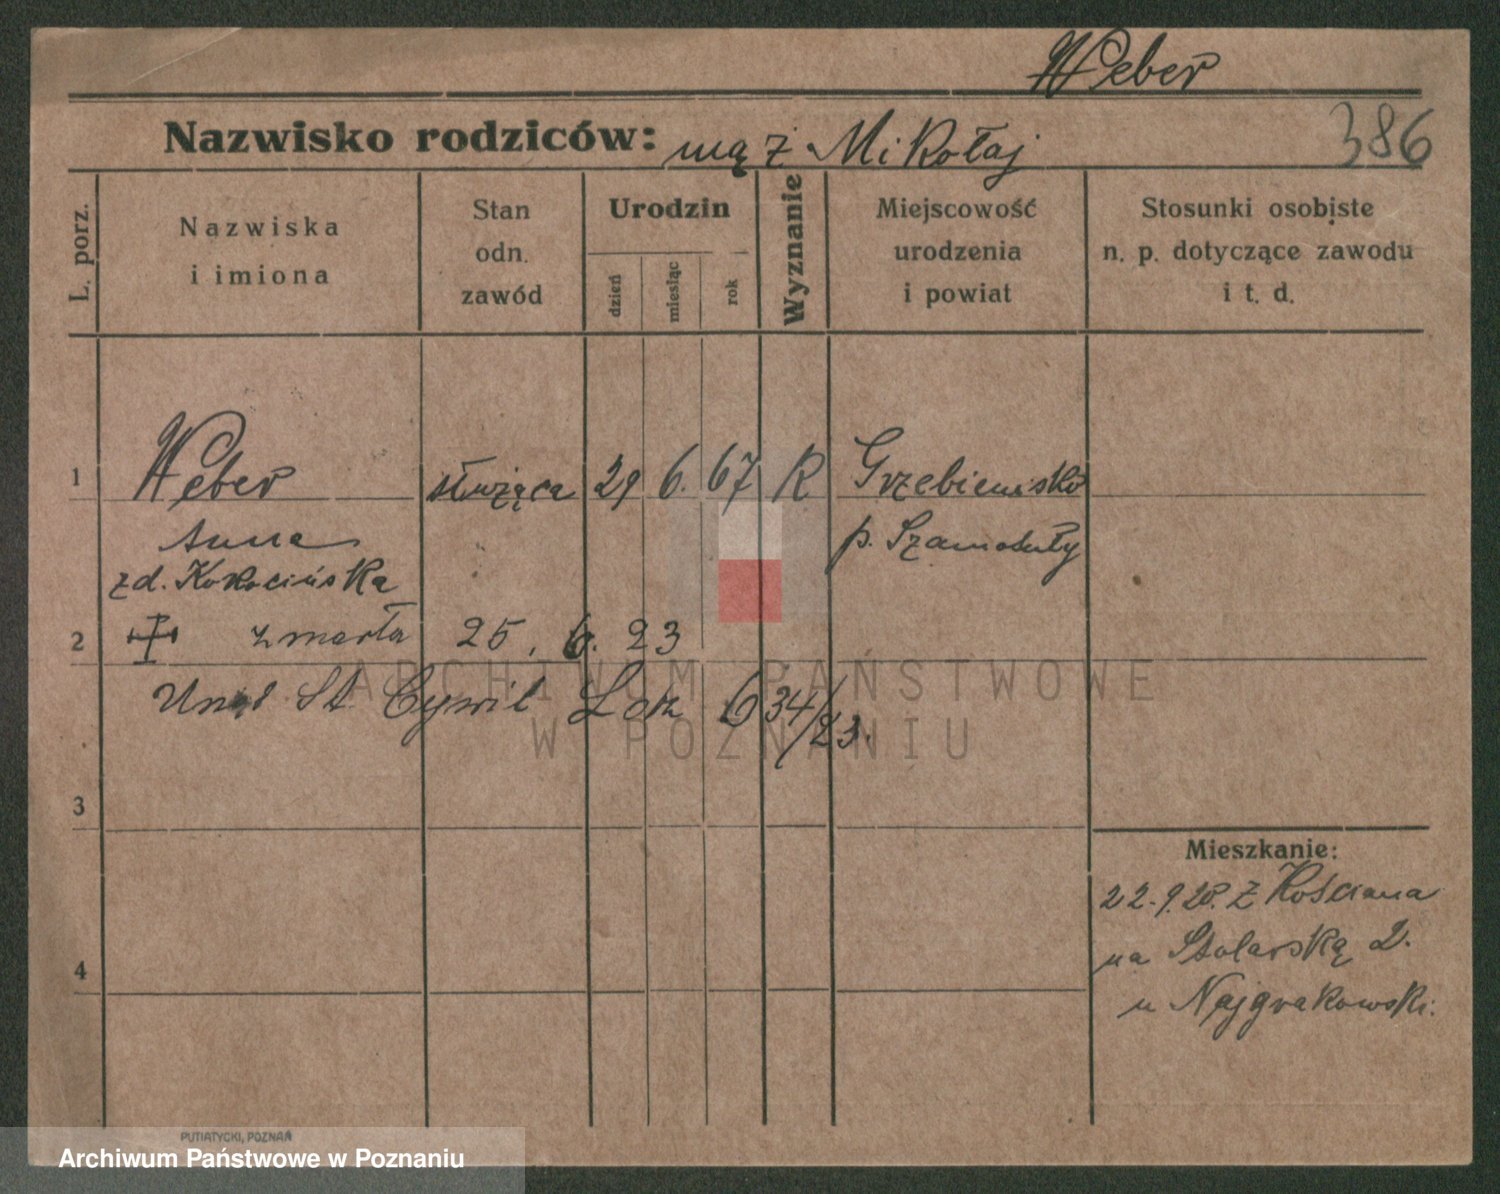 Weber
Nazwisko rodziców: mąż Mikołaj
386
L. porz.
Nazwiska
i imiona
Stan
odn.
zawód
Urodzin
dzień
miesiąc
rok
Wyznanie
Miejscowość
urodzenia
i powiat
Stosunki osobiste
n. p. dotyczące zawodu
i t. d.
1 Weber służąca 29 6. 67 R Grzebienisko
Anna p. Szamotuły
zd. Kokocińska
2 zmarła 25. 6. 23
St Cywil 634/23.
3
4
Mieszkanie:
22.9.20. z Kościana
na Stolarską 2.
u Najgrakowski.
ARCHIWUM PAŃSTWOWE
W POZNANIU
PUTIATYCKI, POZNAŃ
Archiwum Państwowe w Poznaniu